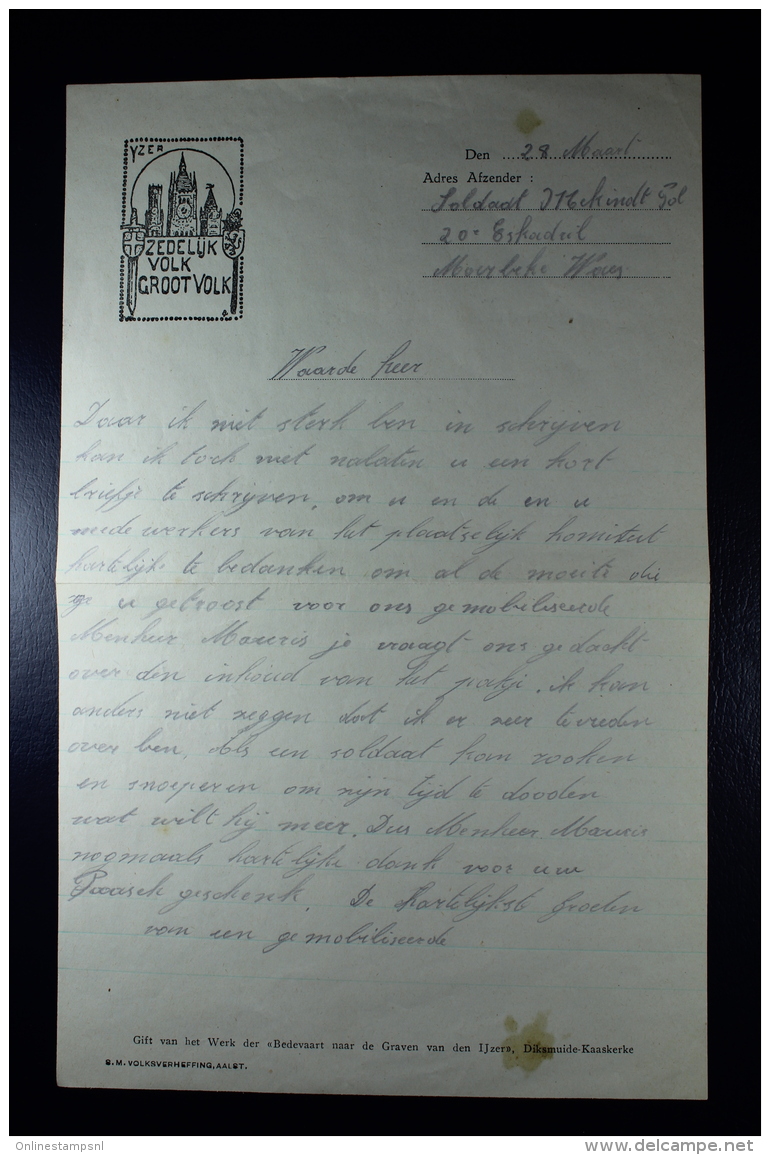 YZER
ZEDELIJK
VOLK
GROOT VOLK
Den 28 Maart
Adres Afzender :
Soldaat
20e Eskadril
Moerbeke Waes
Waarde heer
Daar ik niet sterk ben in schrijven
kan ik toch niet nalaten u een kort
briefje te schrijven, om u en de en u
mede werkers van het plaatselijk komiteit
hartelijke te bedanken om al de moeite die
ge u getroost voor ons gemobiliseerde
Menheer Mauris je vraagt ons gedacht
over den inhoud van het pakje. ik kan
anders niet zeggen dat ik er zeer tevreden
over ben. Als een soldaat kan rooken
en snoeperen om zijn tijd te dooden
wat wilt hij meer. Dus Menheer Mauris
nogmaals hartelijke dank voor uw
Paasch geschenk. De Hartelijkste Groeten
van een gemobiliseerde
Gift van het Werk der «Bedevaart naar de Graven van den IJzer», Diksmuide-Kaaskerke
S.M. VOLKSVERHEFFING, AALST.
Onlinestampsnl
www.delcampe.net